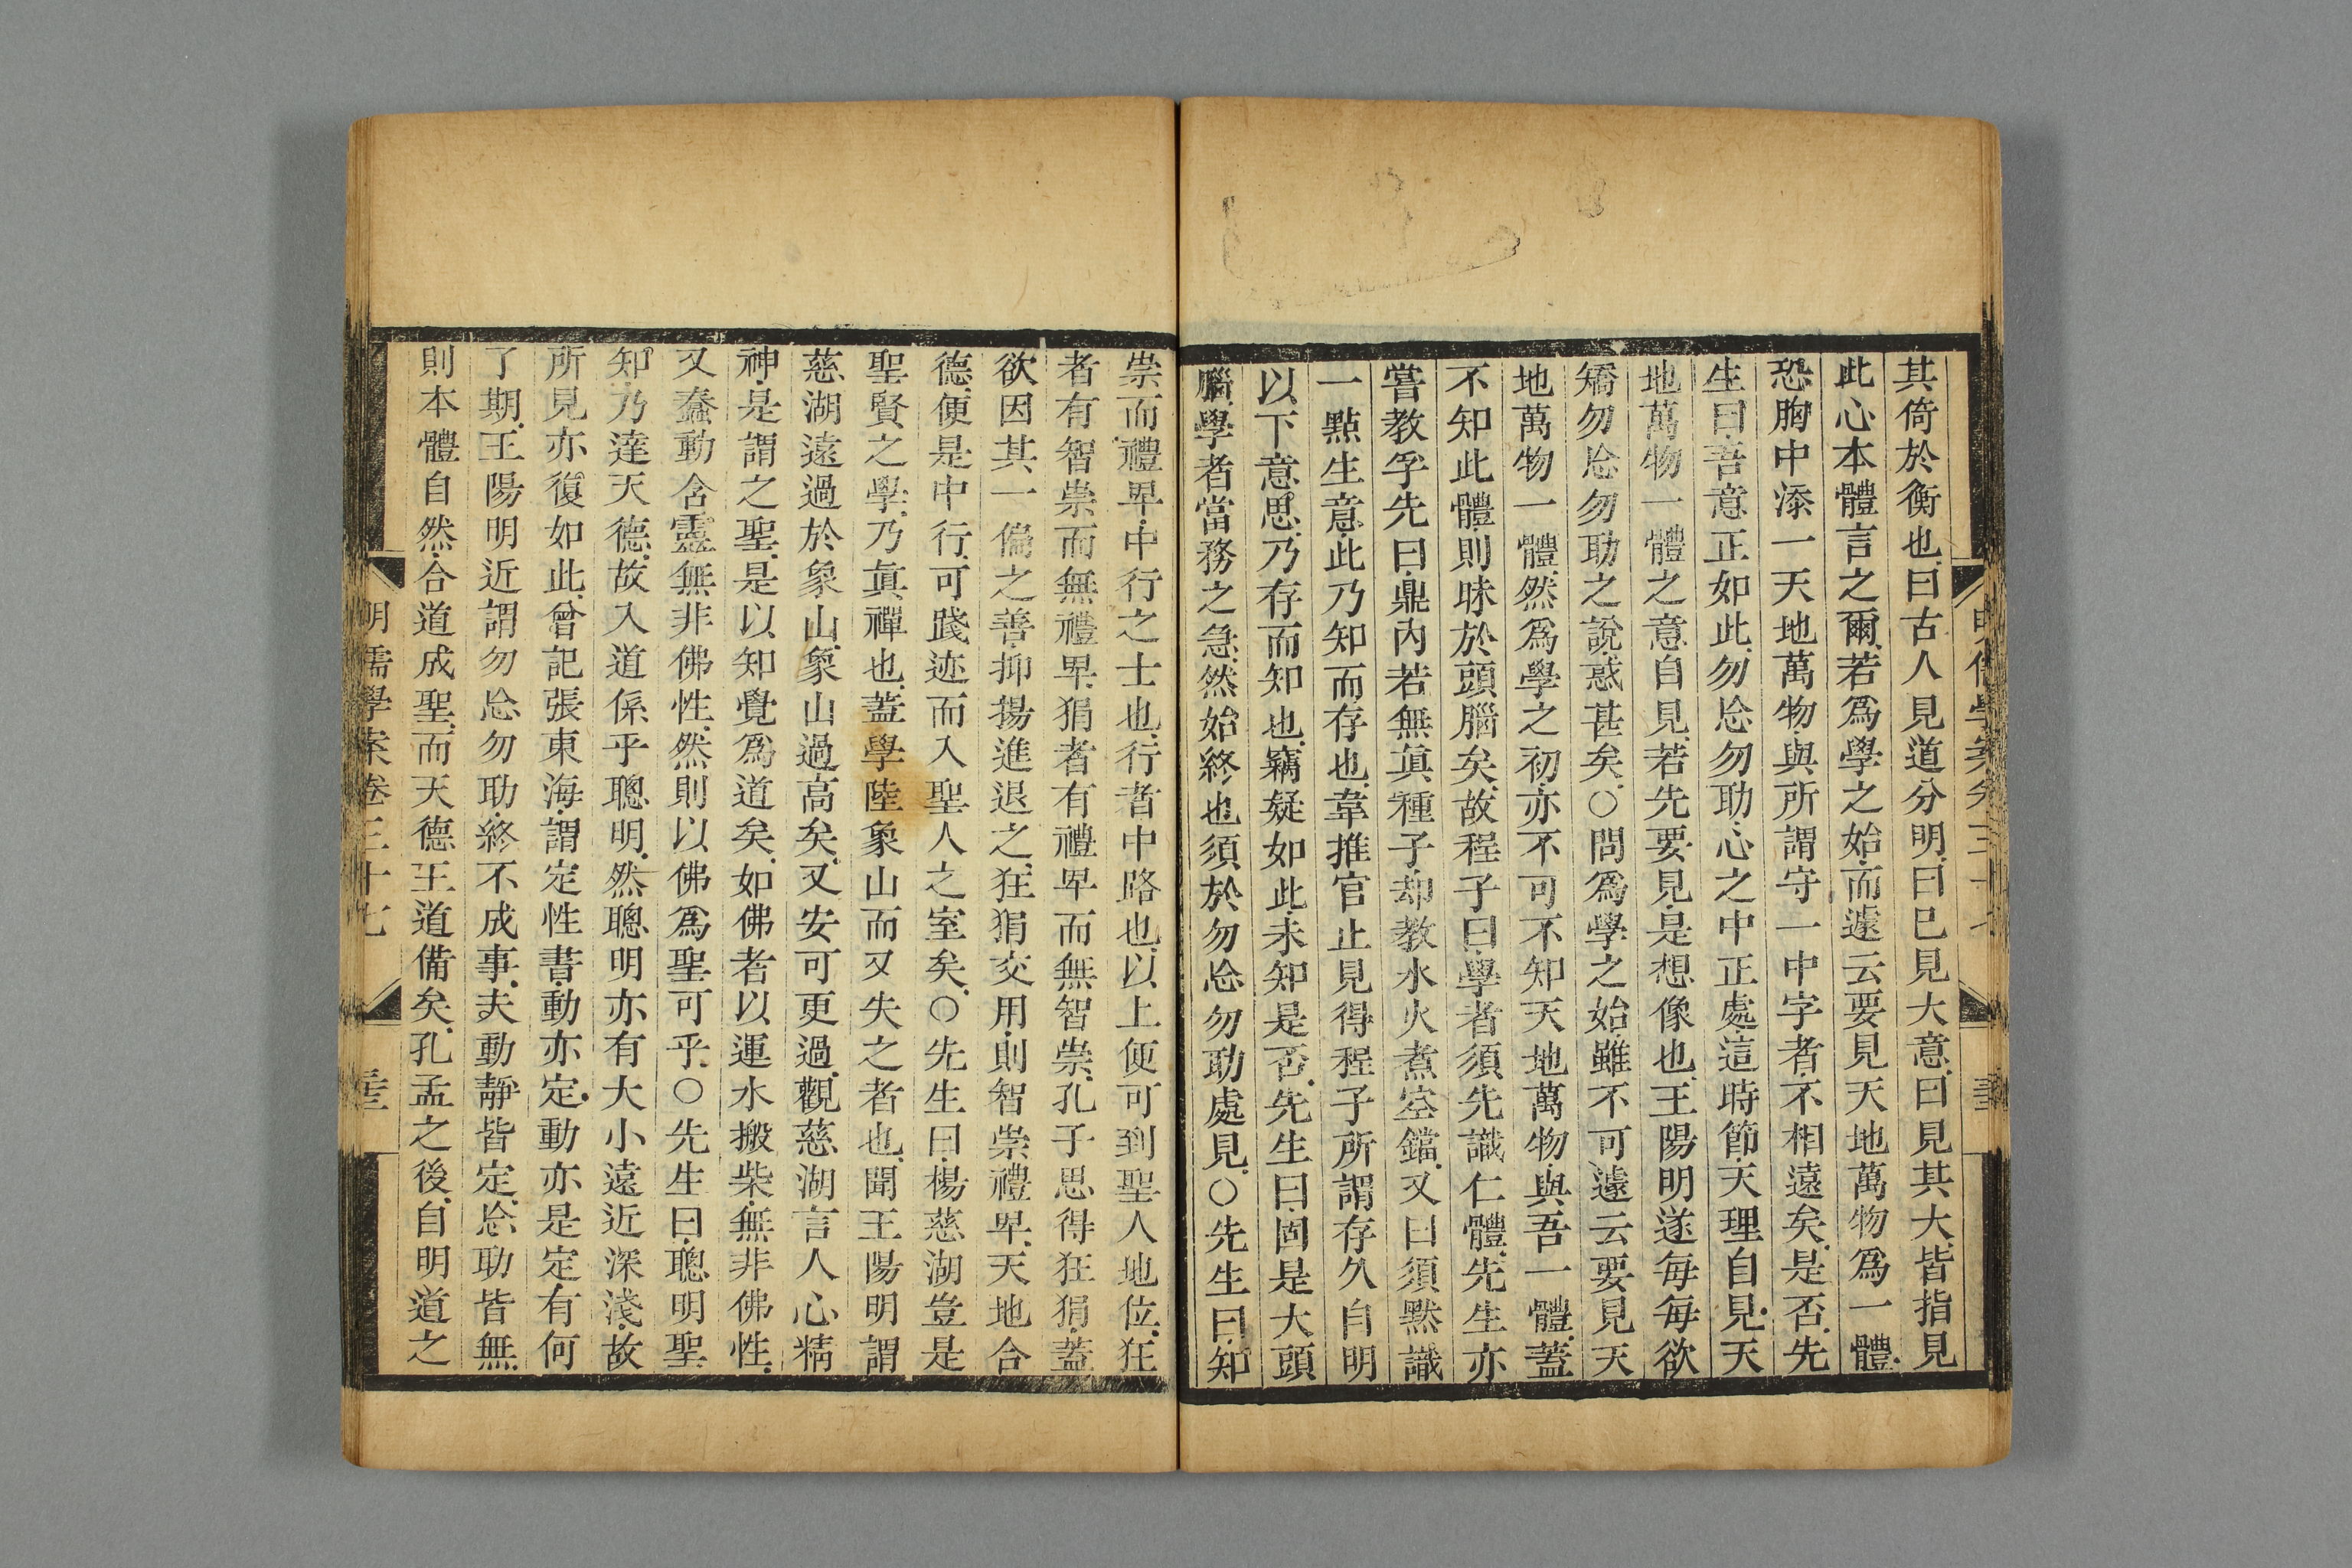 其倚於衡也曰古人見道分明曰已見大意曰見其大皆指見
此心本體言之爾若爲學之始而遽云要見天地萬物爲一體
恐胸中添一天地萬物與所謂守一中字者不相遠矣是否先
生曰吾意正如此勿忘勿助心之中正處這時節天理自見天
地萬物一體之意自見若先要見是想像也王陽明遂每每欲
矯勿忘勿助之說惑甚矣○問爲學之始雖不可遽云要見天
地萬物一體然爲學之初亦不可不知天地萬物與吾一體蓋
不知此體則昧於頭腦矣故程子曰學者須先識仁體先生亦
嘗教孚先曰鼎內若無眞種子却教水火煮空鐺又曰須默識
一點生意此乃知而存也韋推官止見得程子所謂存久自明
以下意思乃存而知也竊疑如此未知是否先生曰固是大頭
腦學者當務之急然始終也須於勿忘勿助處見○先生曰知
崇而禮卑中行之士也行者中路也以上便可到聖人地位狂
者有智崇而無禮卑狷者有禮卑而無智崇孔子思得狂狷蓋
欲因其一偏之善抑揚進退之狂狷交用則智崇禮卑天地合
德便是中行可踐迹而入聖人之室矣○先生曰楊慈湖豈是
聖賢之學乃眞禪也蓋學陸象山而又失之者也聞王陽明謂
慈湖遠過於象山象山過高矣又安可更過觀慈湖言人心精
神是謂之聖是以知覺爲道矣如佛者以運水搬柴無非佛性
又蠢動含靈無非佛性然則以佛爲聖可乎○先生曰聰明聖
知乃達天德故入道係乎聰明然聰明亦有大小遠近深淺故
所見亦復如此曾記張東海謂定性書動亦定動亦是定有何
了期王陽明近謂勿忘勿助終不成事夫動靜皆定忘助皆無
則本體自然合道成聖而天德王道備矣孔孟之後自明道之
明儒學案卷三十七